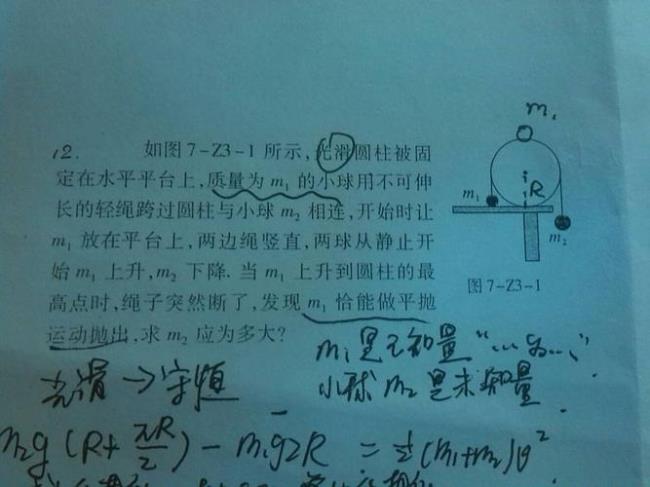 12. 如图7-Z3-1所示,光滑圆柱被固
定在水平平台上,质量为m₁的小球用不可伸
长的轻绳跨过圆柱与小球m₂相连,开始时让
m₁放在平台上,两边绳竖直,两球从静止开
始m₁上升,m₂下降.当m₁上升到圆柱的最
高点时,绳子突然断了,发现m₁恰能做平抛
运动抛出,求m₂应为多大?
m₁
R
m₁
m₂
图7-Z3-1
m₁是已知量
小球m₂是未知量
光滑→守恒
m₂g(R+πR/2)-m₁g2R=½(m₁+m₂)v²